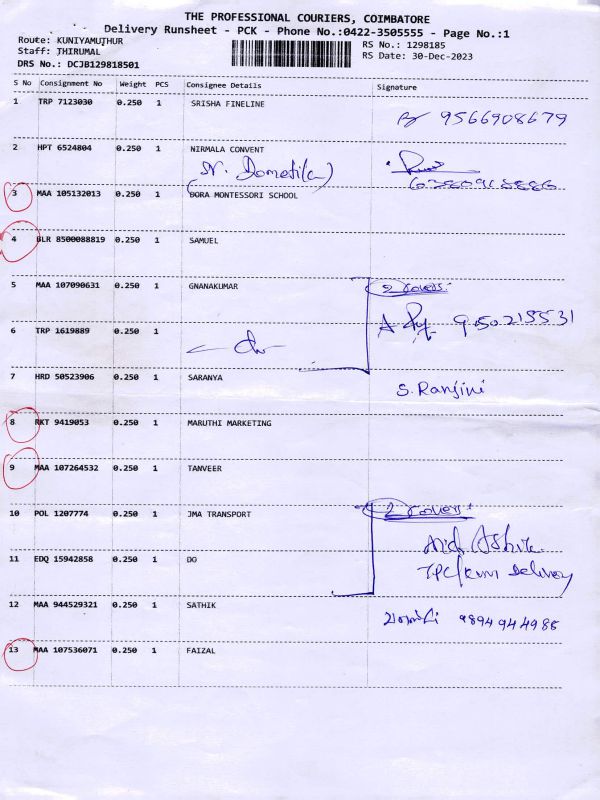 THE PROFESSIONAL COURIERS, COIMBATORE
Delivery Runsheet - PCK - Phone No.:0422-3505555 - Page No.:1
Route: KUNIYAMUTHUR
RS No.: 1298185
Staff: THIRUMAL
RS Date: 30-Dec-2023
DRS No.: DCJB129818501
S No Consignment No Weight PCS Consignee Details Signature
1 TRP 7123030 0.250 1 SRISHA FINELINE
9566908679
2 HPT 6524804 0.250 1 NIRMALA CONVENT
3 MAA 105132013 0.250 1 BORA MONTESSORI SCHOOL
4 BLR 8500088819 0.250 1 SAMUEL
5 MAA 107090631 0.250 1 GNANAKUMAR 2 covers:
6 TRP 1619889 0.250 1
7 HRD 50523906 0.250 1 SARANYA
S. Ranjini
8 RKT 9419053 0.250 1 MARUTHI MARKETING
9 MAA 107264532 0.250 1 TANVEER
10 POL 1207774 0.250 1 JMA TRANSPORT 2 covers:
11 EDQ 15942858 0.250 1 DO
Delivery
12 MAA 944529321 0.250 1 SATHIK
9894944986
13 MAA 107536071 0.250 1 FAIZAL